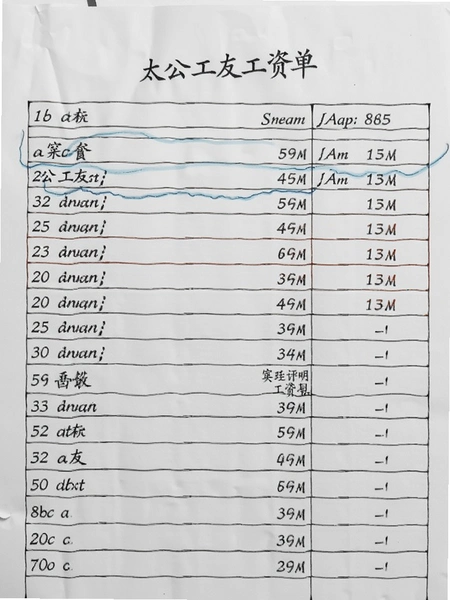 太公工友工资单
1b a标 Sneam ʃAap: 885
a 寀c 食 59M ʃAm 15M
2公工友st; 45M ʃAm 13M
32 druan; 59M 13M
25 druan; 49M 13M
23 druan; 69M 13M
20 druan; 39M 13M
20 druan; 49M 13M
25 druan; 39M –!
30 druan; 34M –!
59 –!
工资
33 druan 39M –!
52 at标 59M –!
32 a友 49M –!
50 dbxt 69M –!
8bc a. 39M –!
20c c. 39M –!
70o c. 29M –!